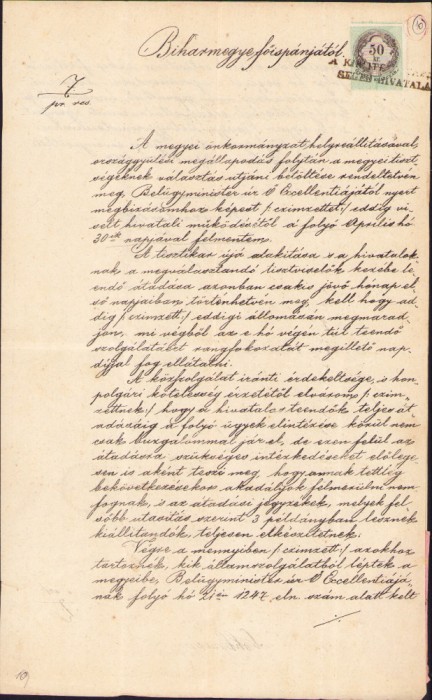 10
Biharmegye főispánjától.
50
KR.
A K
SEGÉD-HIVATALA
7
pr. res
A megyei önkormányzat helyreállításával,
országgyülési megállapodás folytán a megyei tiszt-
végeknek választás utjáni betöltése rendeltetvén
meg, Belügyminister úr Ő Excellentiájától nyert
megbizásomhoz képest /:czimzettet:/ eddig vi-
selt hivatali működésétől a folyó Április hó
30-ik napjával felmentem.
A tisztikar ujjá alakitása s a hivatalok-
nak a megválasztandó tisztviselők kezébe le-
endő átadása azonban csakis jövő hónap el-
ső napjaiban történhetvén meg, kell hogy ad-
dig /:czimzett:/ eddigi állomásán megmarad-
jon, mi végből az e hó végén túl teendő
szolgálatáért rangfokozatát megillető nap-
díjjal fog ellátatni.
A közszolgálat iránti érdekeltsége, is hon-
polgári kötelesség érzetétől elvárom /:czim-
zettnek:/ hogy a hivatalos teendők teljes át-
adásáig a folyó ügyek elintézése körül nem-
csak buzgalommal jár el, de ezen felül az
átadásra szükséges intézkedéseket előlege-
sen is akként teszi meg, hogy annak tettleg
bekövetkezésekor akadályok felmerülni nem
fognak, is az átadási jegyzékek, melyek fel-
sőbb utasitás szerint 3 példányban lesznek
kiállitandók, teljesen elkészitetnek.
Végre a mennyiben /:czimzett:/ azokhoz
tartoznék, kik államszolgálatból léptek a
megyeibe, Belügyminister úr Ő Excellentiájá-
nak folyó hó 21-én 1247. eln. szám alatt kelt
./.